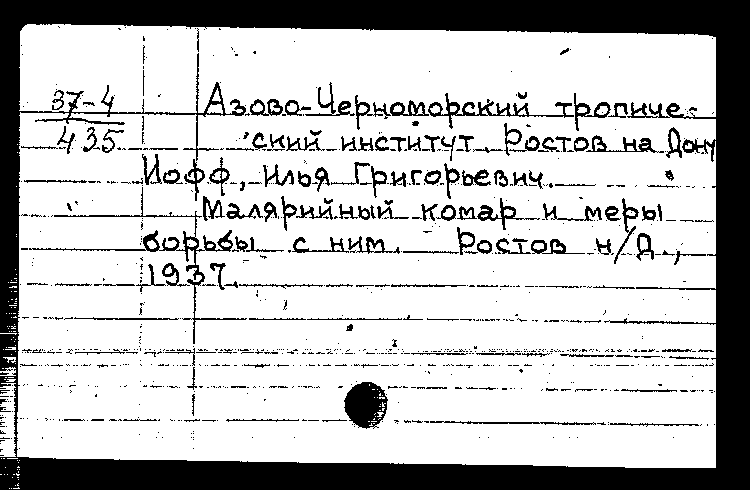 37-4
435
Азово-Черноморский тропиче-
ский институт. Ростов на Дону
Иофф, Илья Григорьевич.
Малярийный комар и меры
борьбы с ним. Ростов н/Д.,
1937.